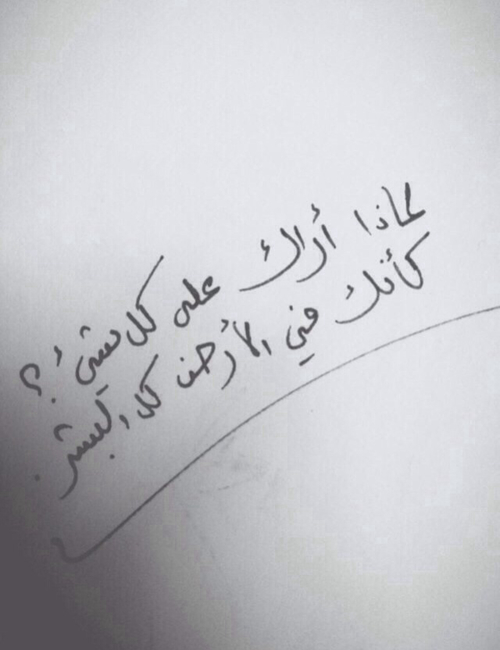 لماذا أراك على كل شيء؟
كأنك في الأرض كل البشر.